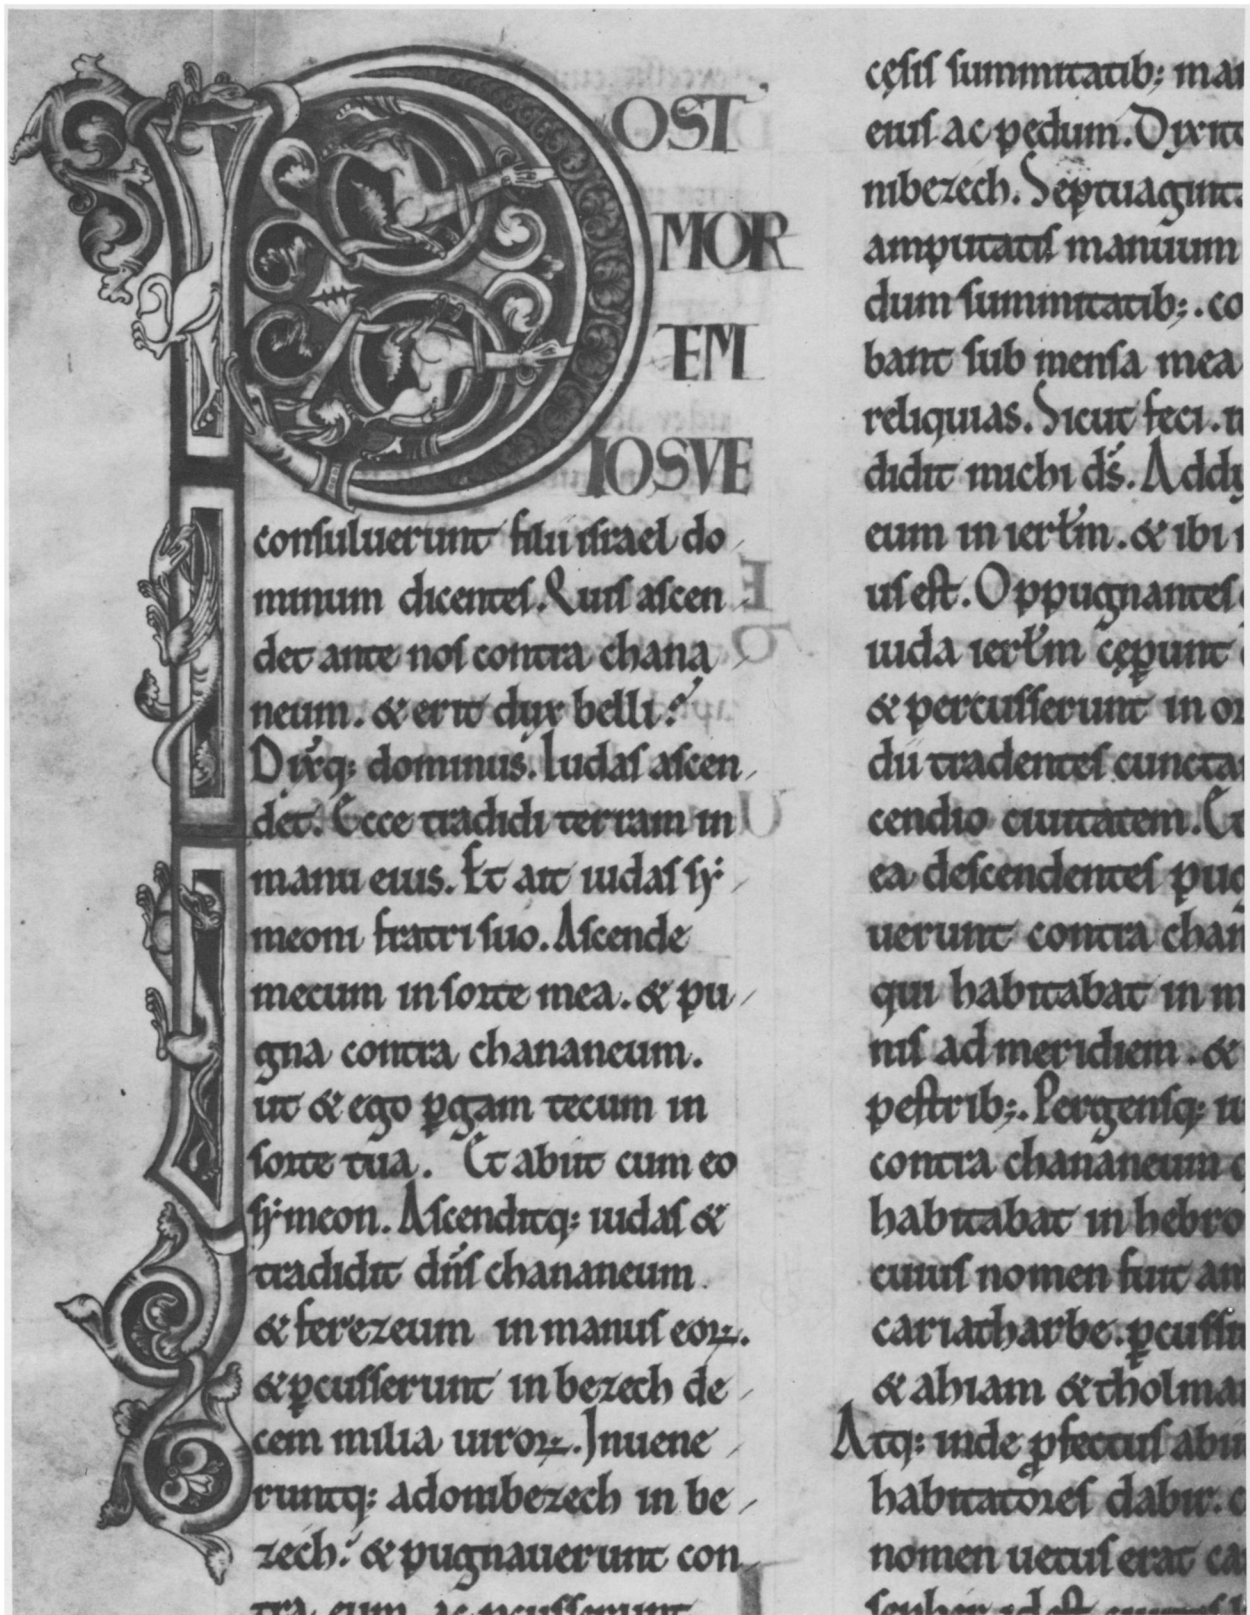 POST
MORT
EM
IOSVE
consuluerunt filii israel do
minum dicentes. Quis ascen
det ante nos contra chana
neum. & erit dux belli?
Dixq; dominus. Iudas ascen
det. Ecce tradidi terram in
manu eius. Et ait iudas sy
meoni fratri suo. Ascende
mecum in sorte mea. & pu
gna contra chananeum.
ut & ego pgam tecum in
sorte tua. Et abiit cum eo
symeon. Ascenditq; iudas &
tradidit dns chananeum
& ferezeum in manus eoꝝ.
& pcusserunt in bezech de
cem milia uiroꝝ. Inuene
runtq; adonibezech in be
zech. & pugnauerunt con
tra eum ac pcusserunt
cęsis summitatib; man
eius ac pedum. Dixit
nibezech. Septuaginta
amputatis manuum
dum summitatib;. co
bant sub mensa mea
reliquias. Sicut feci.
didit michi ds. Addu
eum in ierlm. & ibi
us est. Oppugnantes
iuda ierlm cęperunt
& percusserunt in or
dii tradentes cuncta
cendio ciuitatem. Et
ea descendentes pug
uerunt contra chan
qui habitabat in m
nis ad meridiem. &
pestrib;. Pergensq; iu
contra chananeum
habitabat in hebro
cuius nomen fuit an
cariatharbe. pcussit
& ahiam & tholmai
Atq; inde pfectus abiit
habitatores dabir. c
nomen uetus erat ca
sepher id est ciuitas